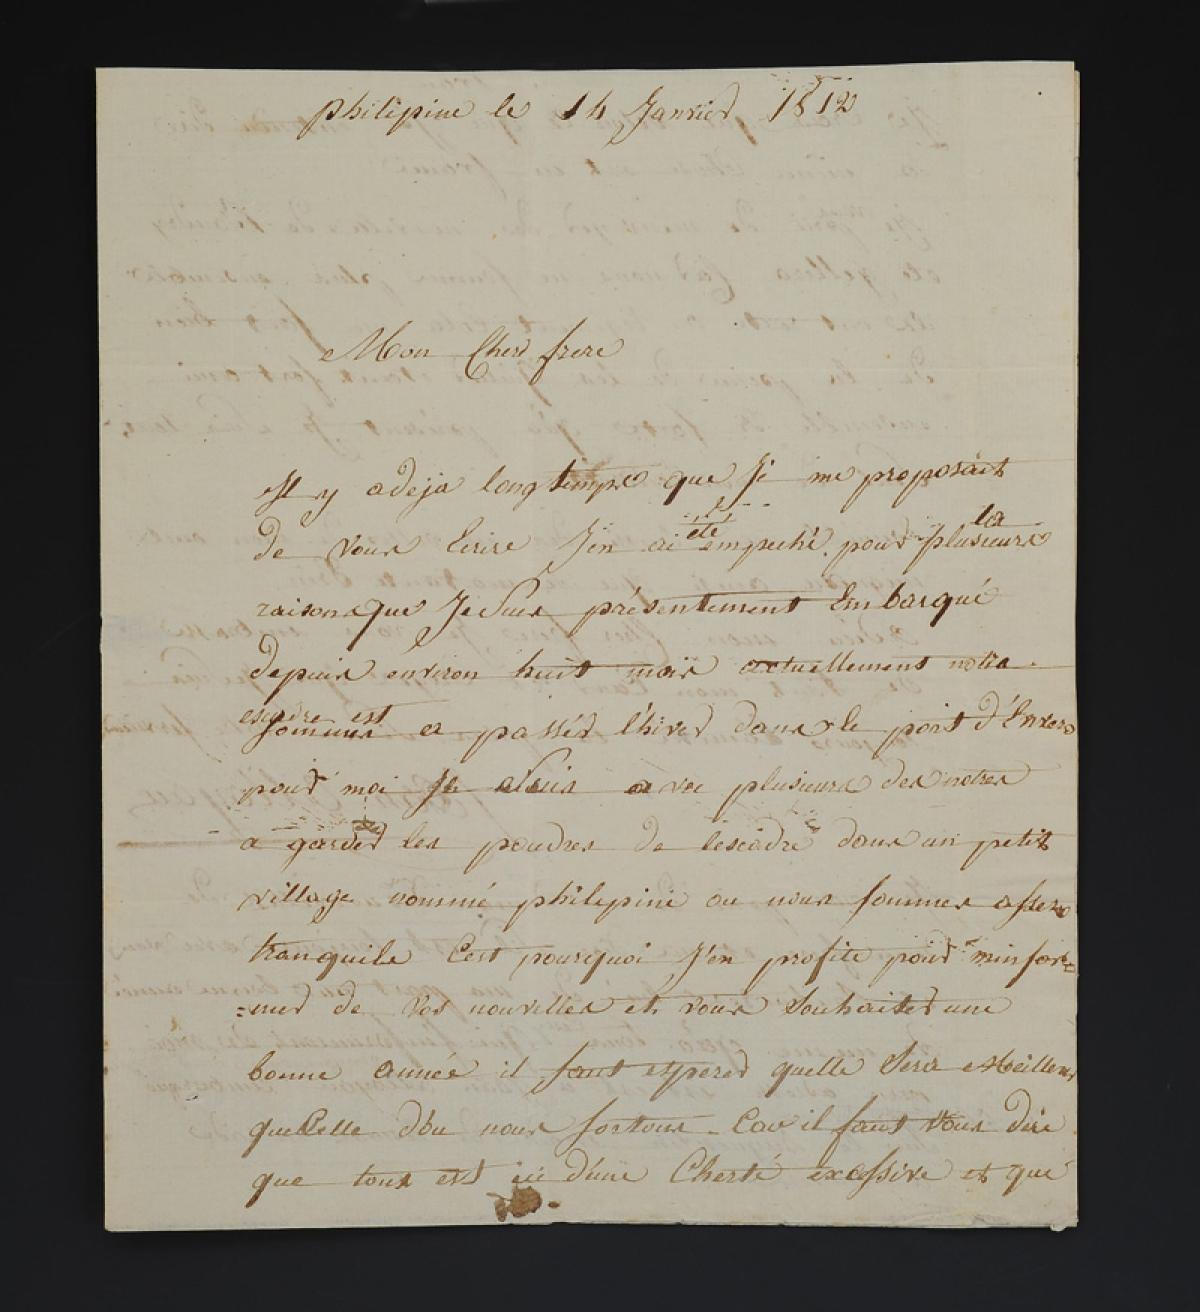 philipine le 14 Janvier 1812
Mon Cher frere
Il y a deja long temps que Je me proposait
de vous Ecrire J'en ai été empeché pour plusieurs la
raisons que Je suis présentement Embarqué
depuis environ huit mois actuellement notre
escadre est a passér l'hiver dans le port d'Envers
pour moi Je suis avec plusieurs des notres
a garder les poudres de lescadre dans un petit
village nommé philipine ou nous sommes assez
tranquile C'est pourquoi J'en profite pour minfor=
=mer de vos nouvelles et vous Souhaiter une
bonne année il faut esperer quelle Sera Meilleur
que Celle d'ou nous sortons Car il faut vous dire
que tous est ici d'une Cherté excessive et que